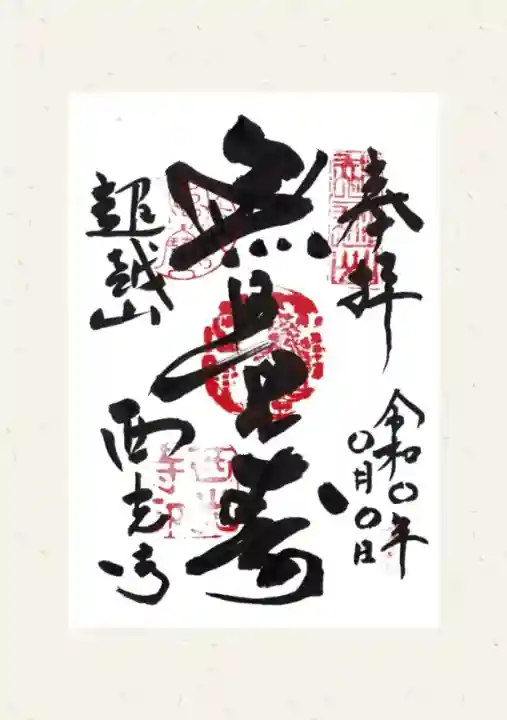 奉拝
令和〇年
〇月〇日
無量寿
超越山
西光寺